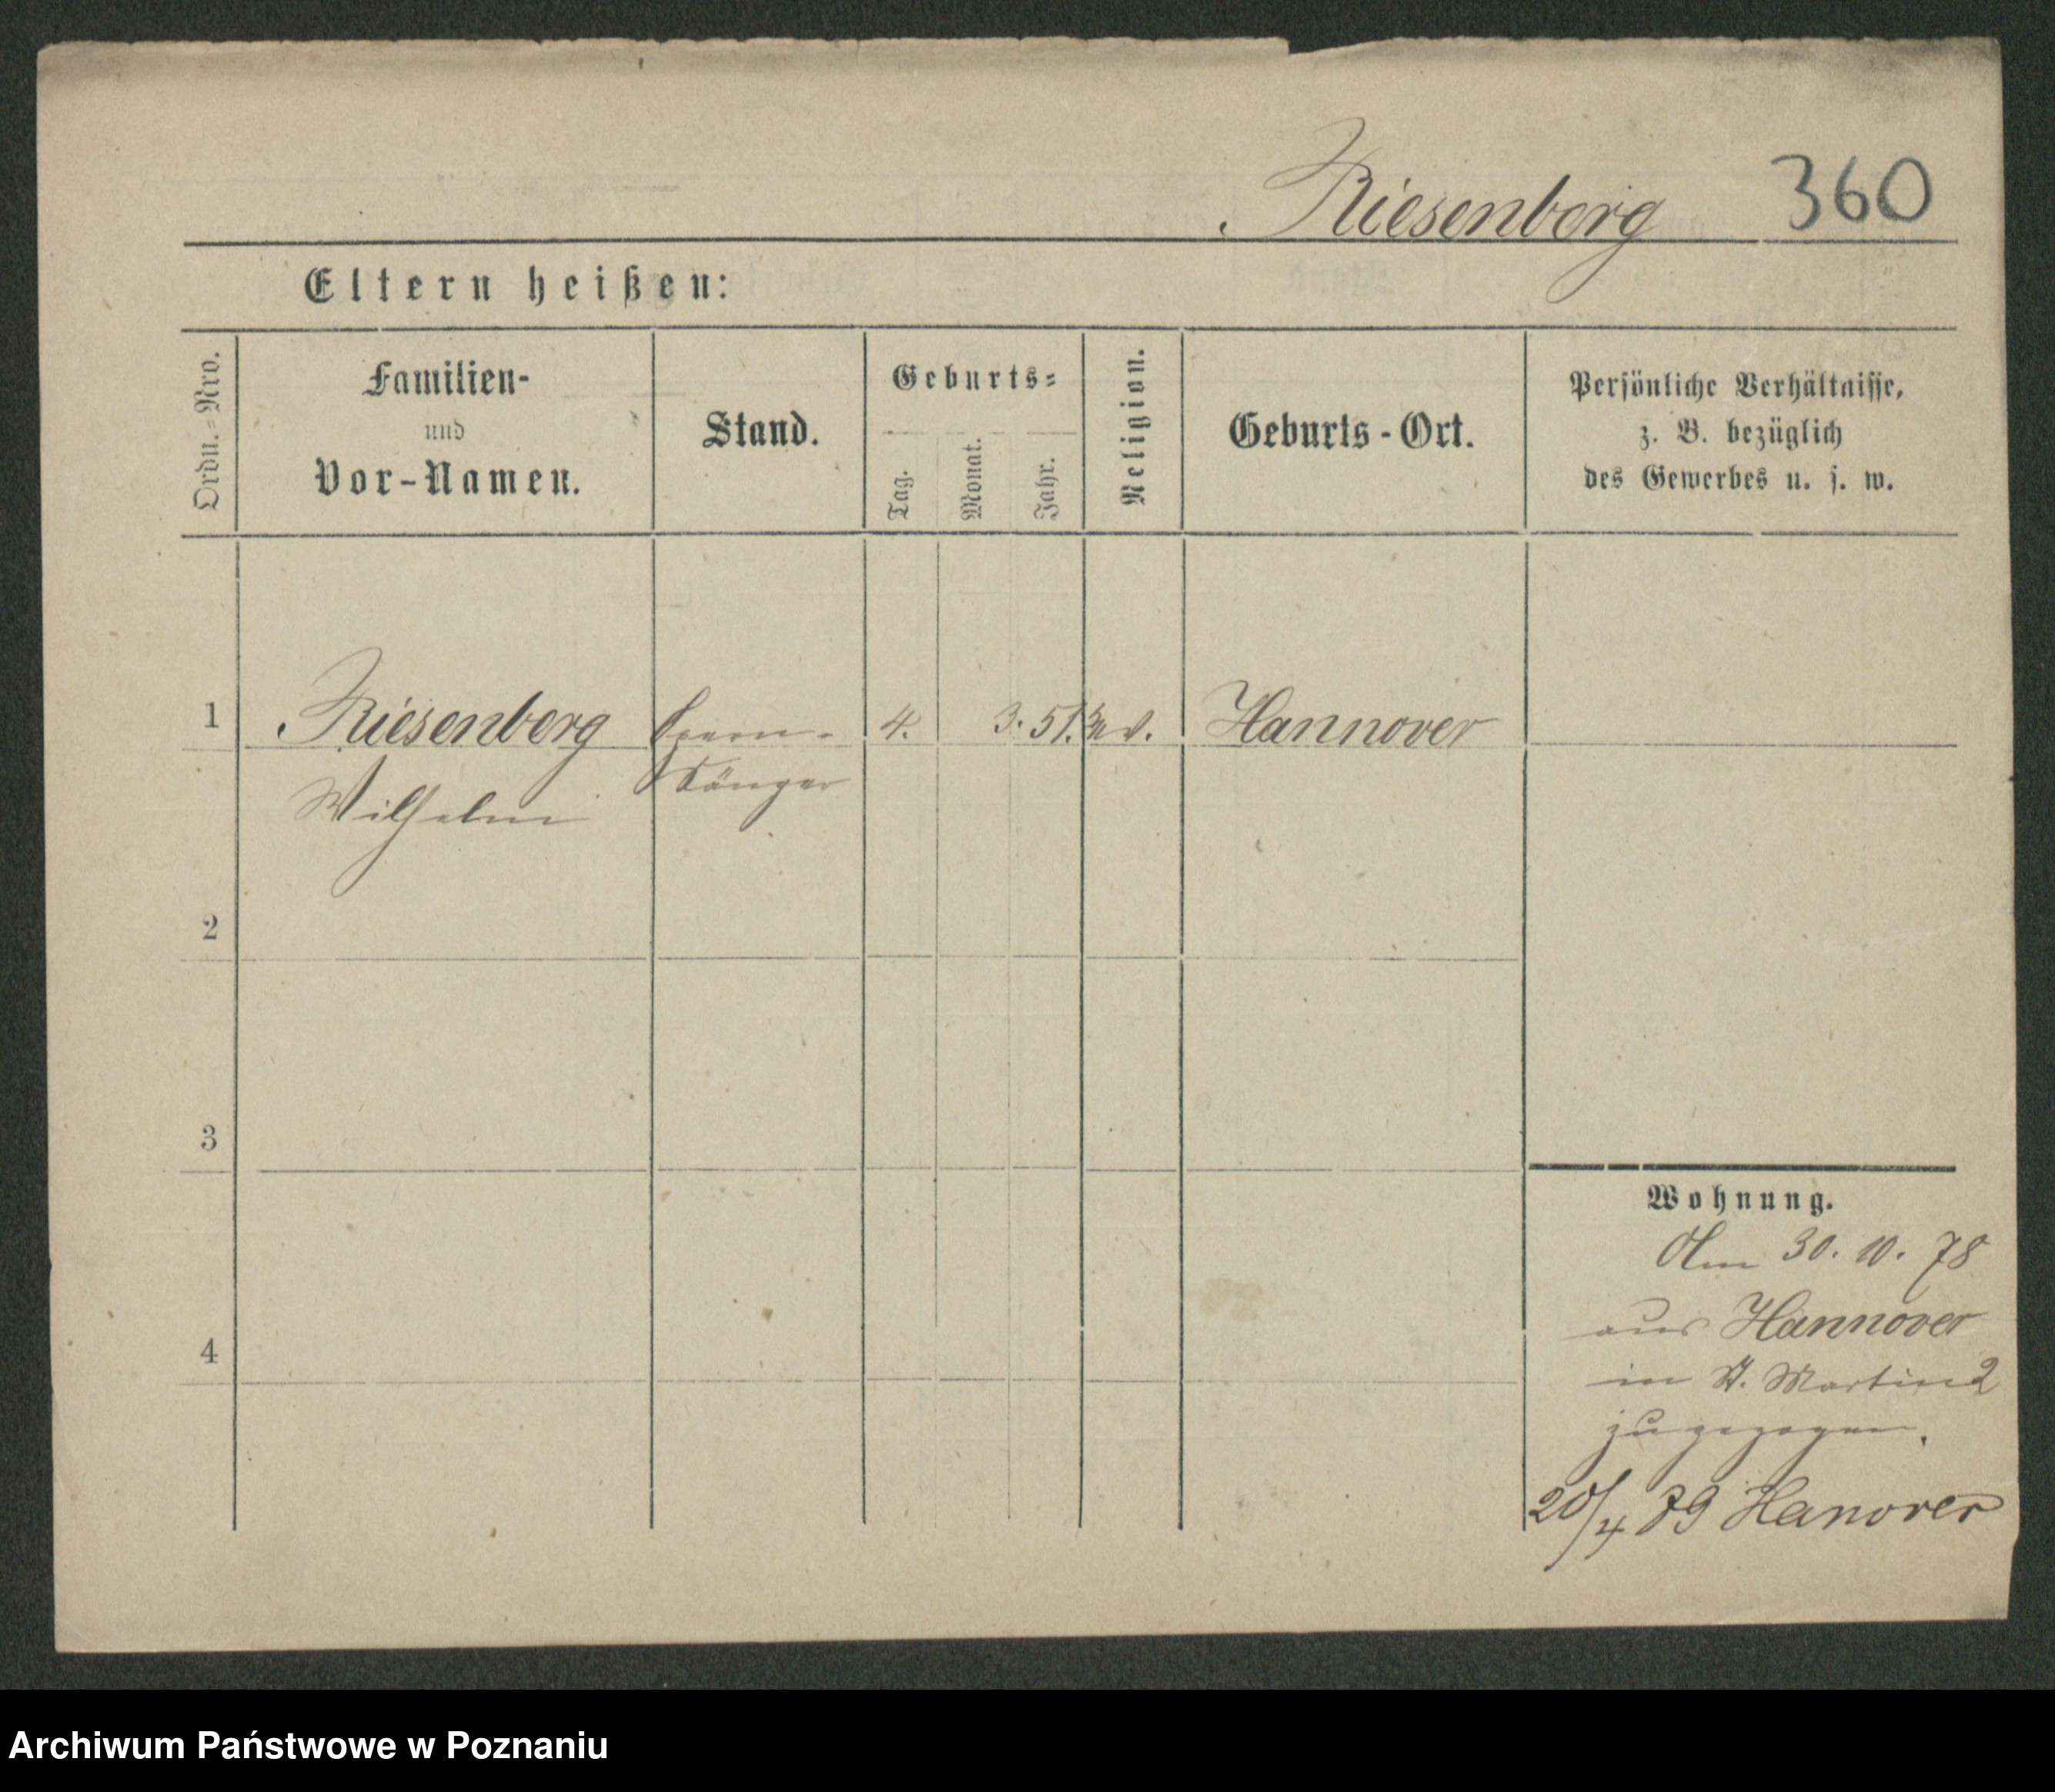 Riesenberg 360
Eltern heißen:
Ordn.=Nro.
Familien-
und
Vor-Namen.
Stand.
Geburts=
Tag.
Monat.
Jahr.
Religion.
Geburts-Ort.
Persönliche Verhältnisse,
z. B. bezüglich
des Gewerbes u. s. w.
1 Riesenberg Opern- 4. 3. 51. ev. Hannover
Wilhelm Sänger
2
3
4
Wohnung.
Am 30. 10. 78
aus Hannover
in St. Martin 2
zugezogen.
20/4 79 Hanover
Archiwum Państwowe w Poznaniu